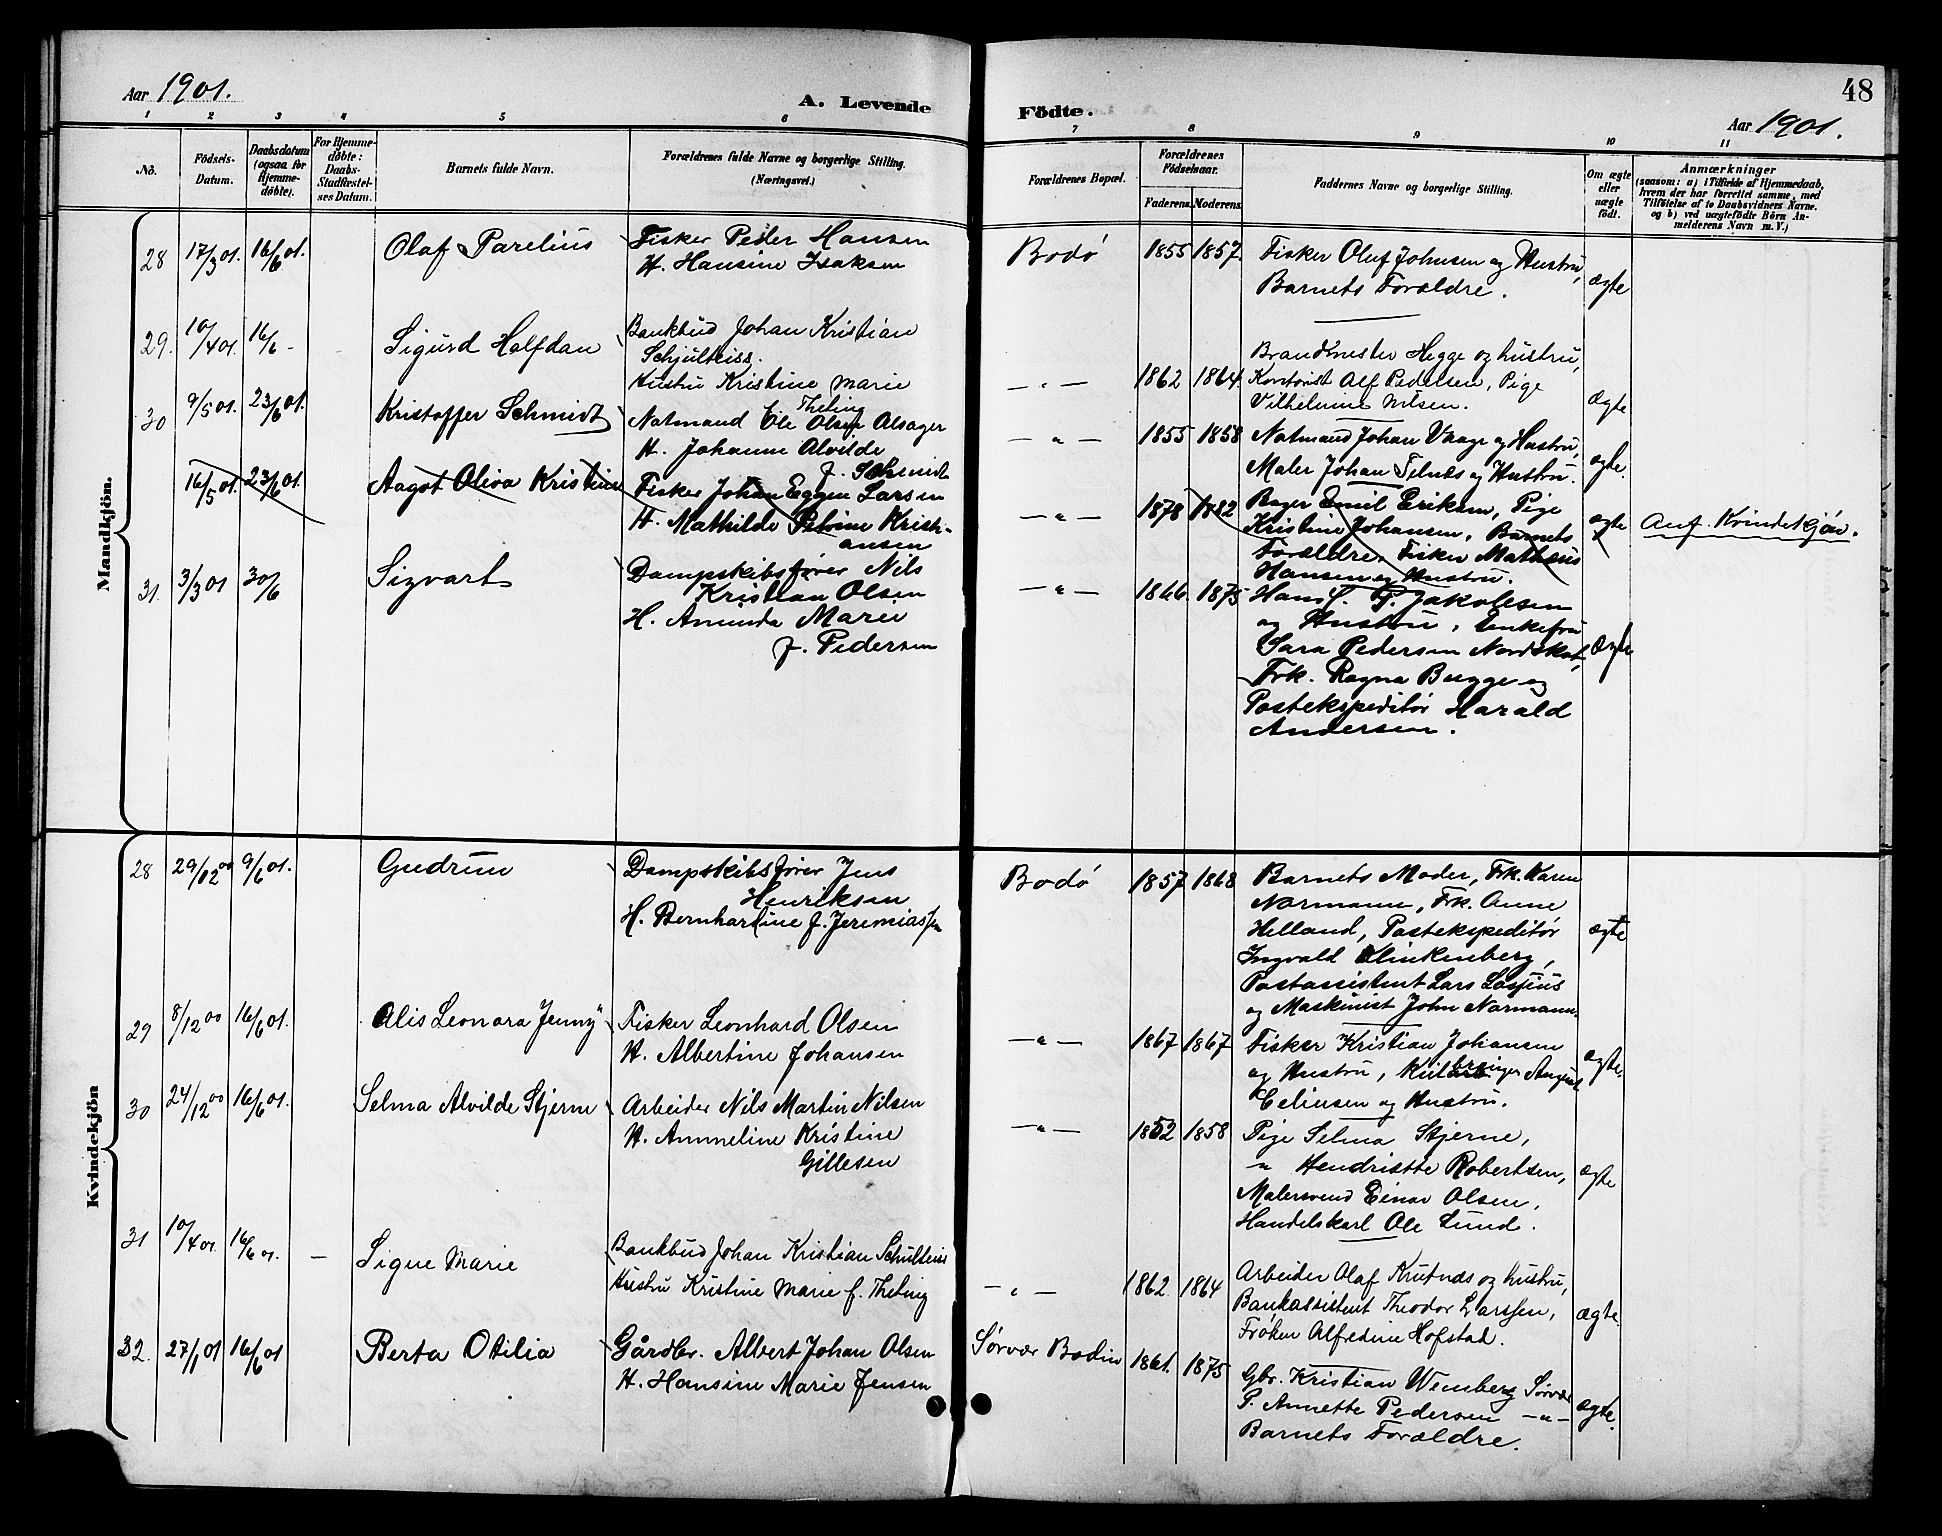 Aar 1901.
A. Levende
Födte.
48
Aar 1901.
1 2 3 4 5 6 7 8 9 10 11
No.
Födsels-Datum.
Daabsdatum (ogsaa for Hjemme-döbte).
For Hjemme-döbte: Daabs-Stadfæstel-ses Datum.
Barnets fulde Navn.
Forældrenes fulde Navne og borgerlige Stilling.
(Næringsvei.)
Forældrenes Bopæl.
Forældrenes Födselsaar.
Faderens. Moderens.
Faddernes Navne og borgerlige Stilling.
Om ægte eller uægte födt.
Anmærkninger
(saasom: a) i Tilfælde af Hjemmedaab,
hvem der har forrettet samme, med
Tilföielse af to Daabsvidners Navne.
og b) ved uægtefödte Börn An-
melderens Navn m. V.)
Mandkjön.
28 17/3 01. 16/6 01. Olaf Parelius Fisker Peder Hansen
H. Hansine Isaksen
Bodó 1855 1857. Fisker Oluf Johnsen og Hustru,
Barnets Forældre. ægte
29. 10/4 01. 16/6 - Sigurd Halfdan Bankbud Johan Kristian
Schjulteiss.
Hustru Kristine Marie
Theting
— " — 1862 1864. Brandmester Hegge og hustru,
Kontorist Alf Pedersen, Pige
Vilhelmine Nilsen. ægte
30 9/5 01. 23/6 01. Kristoffer Schmidt Natmand Ole Olsen Alsager
H. Johanne Alvilde
f. Schmidt
— " — 1855 1858 Natmand Johan Vaage og Hustru,
Maler Johan Telnes og Hustru. ægte.
16/5 01. 23/6 01. Aagot Oliva Kristine Fisker Johan Eggen Larsen
H. Mathilde Petrine Kristi-
ansen
— " — 1878 1882 Bager Emil Eriksen, Pige
Kristine Johansen, Barnets
Forældre, Fisker Mathæus
Hansen og Hustru. ægte Anf. Kvindekjón.
31. 3/3 01 30/6 Sigvart Dampskibsfører Nils
Kristian Olsen
H. Amanda Marie
f. Pedersen
— " — 1866. 1875 P. Jakobsen
og Hustru, Enkefru
Sara Pedersen Nordskot,
Frk. Ragna Bugge og
Postekspeditør Harald
Andersen. Ægte
Kvindekjön
28 29/12 00 9/6 01. Gudrun Dampskibsfører Jens
Henriksen
H. Bernhartine f. Jeremiassen
Bodó 1857 1868 Barnets Moder, Frk. Karen
Normann, Frk. Anne
Helland, Postekspeditør
Ingvald Klinkenberg,
Postassistent Lars
og Maskinist John Normann. ægte
29 8/12 00 16/6 01. Alis Leonora Jenny Fisker Leonhard Olsen
H. Albertine Johansen
— " — 1867 1867 Fisker Kristian Johansen
og Hustru, August
Celiusen og Hustru. ægte.
30 24/12 00 16/6 01. Selma Alvilde Stjerne Arbeider Nils Martin Nilsen
H. Anneline Kristine
Gillesen
— " — 1852 1858 Pige Selma Stjerne,
" Hendriette Robertsen,
Malersvend Einar Olsen,
Handelskarl Ole Lund. ægte
31 10/4 01. 16/6 01. — Signe Marie Bankbud Johan Kristian Schulteiss
Hustru Kristine Marie f. Theting
— " — 1862. 1864 Arbeider Olaf Knutnæs og hustru,
Bankassistent Theodor Larssen,
Frøken Alfredine Hofstad. ægte.
32. 27/1 01 16/6 01 Berta Otilia Gårdbr. Albert Johan Olsen
H. Hansine Marie Jensen
Sørvær Bodin 1861. 1875 Gbr. Kristian Wemberg Sørvær
P. Annette Pedersen — " —
Barnets Forældre. ægte.